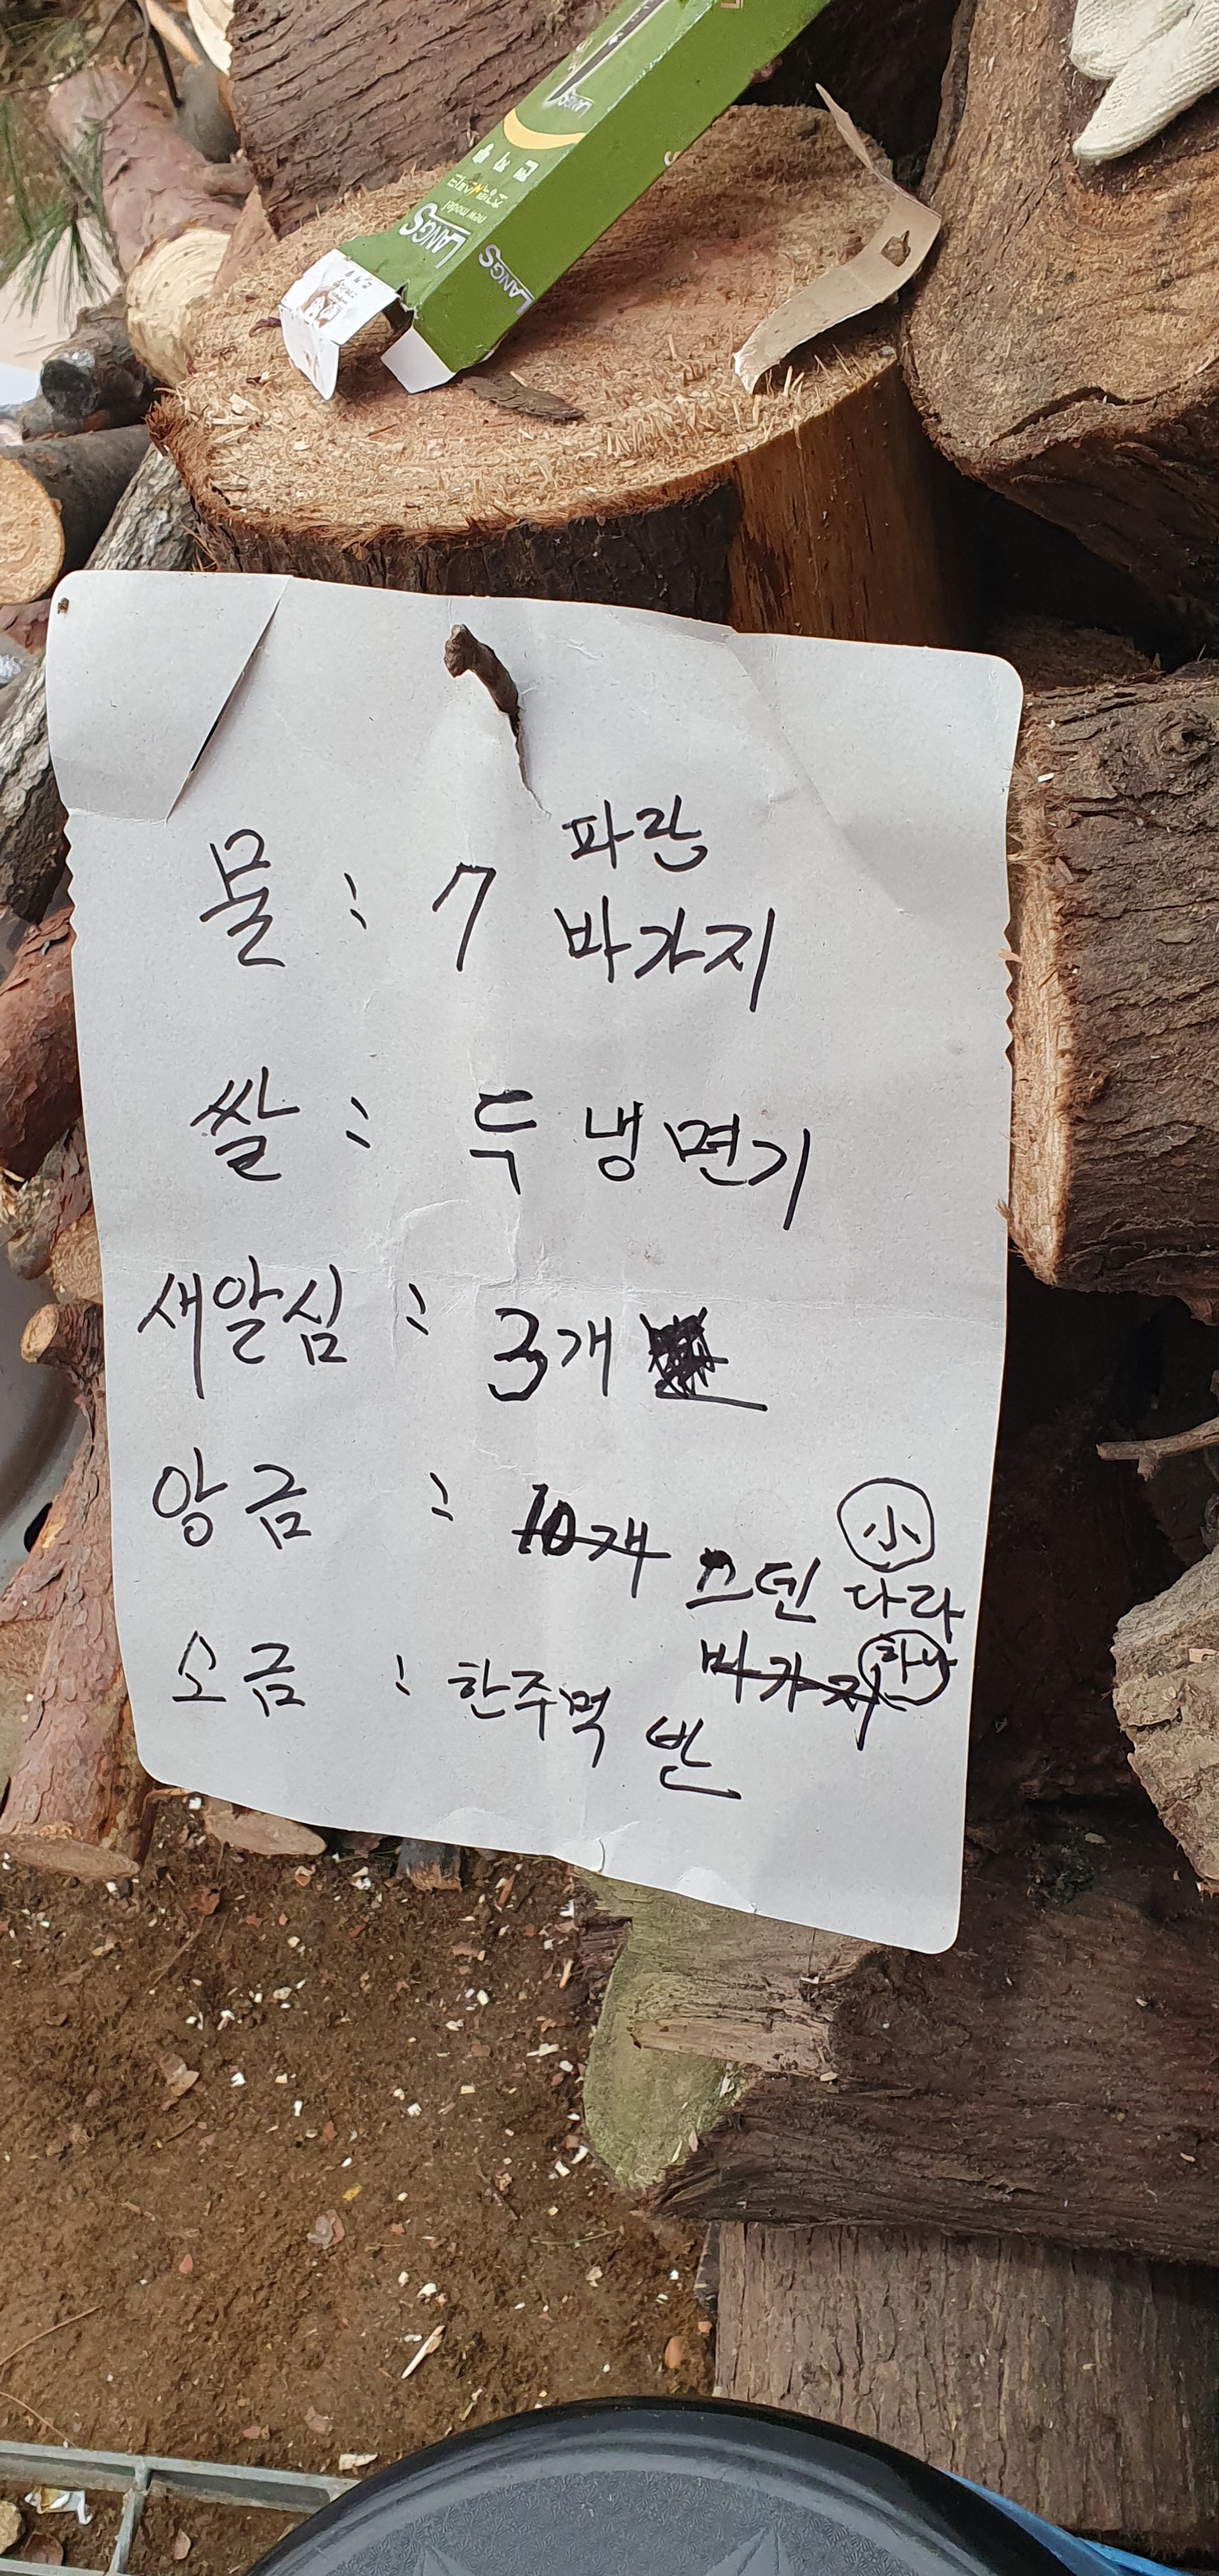 LANGS
LANGS
new model
LANGS
물 : 7 파란
바가지
쌀 : 두 냉면기
새알심 : 3개
앙금 : 10개 스덴 小
다라
바가지 하나
소금 : 한주먹 반